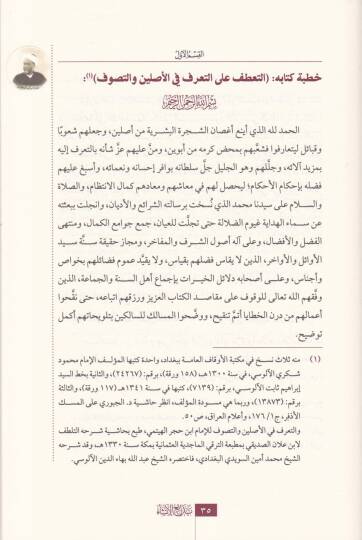 القسم الأول
خطبة كتابه: (التعطف على التعرف في الأصلين والتصوف)(١):
بسم الله الرحمن الرحيم
الحمد لله الذي أينع أغصان الشجرة البشرية من أصلين، وجعلهم شعوبًا
وقبائل ليتعارفوا فشعّبهم بمحض كرمه من أبوين، ومنّ عليهم عزّ شأنه بالتعرف إليه
بمزيد آلائه، وجلّلهم وهو الجليل جلّ سلطانه بوافر إحسانه ونعمائه، وأسبغ عليهم
فضله بإحكام الأحكام؛ ليحصل لهم في معاشهم ومعادهم كمال الانتظام، والصلاة
والسلام على سيدنا محمد الذي نُسخت برسالته الشرائع والأديان، وانجلت ببعثته
عن سماء الهداية غيوم الضلالة حتى تجلّت للعيان، جمع جوامع الكمال، ومنتهى
الفضل والأفضال، وعلى آله أصول الشرف والمفاخر، ومجاز حقيقة سنّة سيد
الأوائل والأواخر، الذين لا يقاس فضلهم بقياس، ولا يقيَّد عموم فضائلهم بخواص
وأجناس، وعلى أصحابه دلائل الخيرات بإجماع أهل السنة والجماعة، الذين
وفّقهم الله تعالى للوقوف على مقاصد الكتاب العزيز ورزقهم اتباعه، حتى نقَّحوا
أعمالهم من درن الخطايا أتمّ تنقيح، ووضَّحوا المسالك للسالكين بتلويحاتهم أكمل
توضيح.
(١) منه ثلاث نسخ في مكتبة الأوقاف العامة ببغداد، واحدة كتبها المؤلف الإمام محمود
شكري الألوسي، في سنة ١٣٠٠هـ، (١٥٨ ورقة)، برقم: (٢٤٢٦٧)، والثانية بخط السيد
إبراهيم ثابت الألوسي، برقم: (٧١٣٩)، كتبها في سنة ١٣٤١هـ (١١٧ ورقة)، والثالثة
برقم: (١٣٨٧٣)، وربما هي مسودة المؤلف، انظر حاشية د. الجبوري على المسك
الأذفر، ج١/ ١٧٦، وأعلام العراق، ص٥٠.
والتعرف في الأصلين والتصوف للإمام ابن حجر الهيتمي، طبع بحاشية شرحه التلطف
لابن علان الصديقي بمطبعة الترقي الماجدية العثمانية بمكة سنة ١٣٣٠هـ، وقد شرحه
الشيخ محمد أمين السويدي البغدادي، فاختصره الشيخ عبد الله بهاء الدين الألوسي.
٣٥